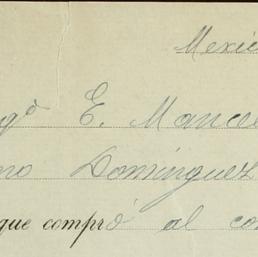 Mexic
gº E. Mance
no Domínguez
que compró al co